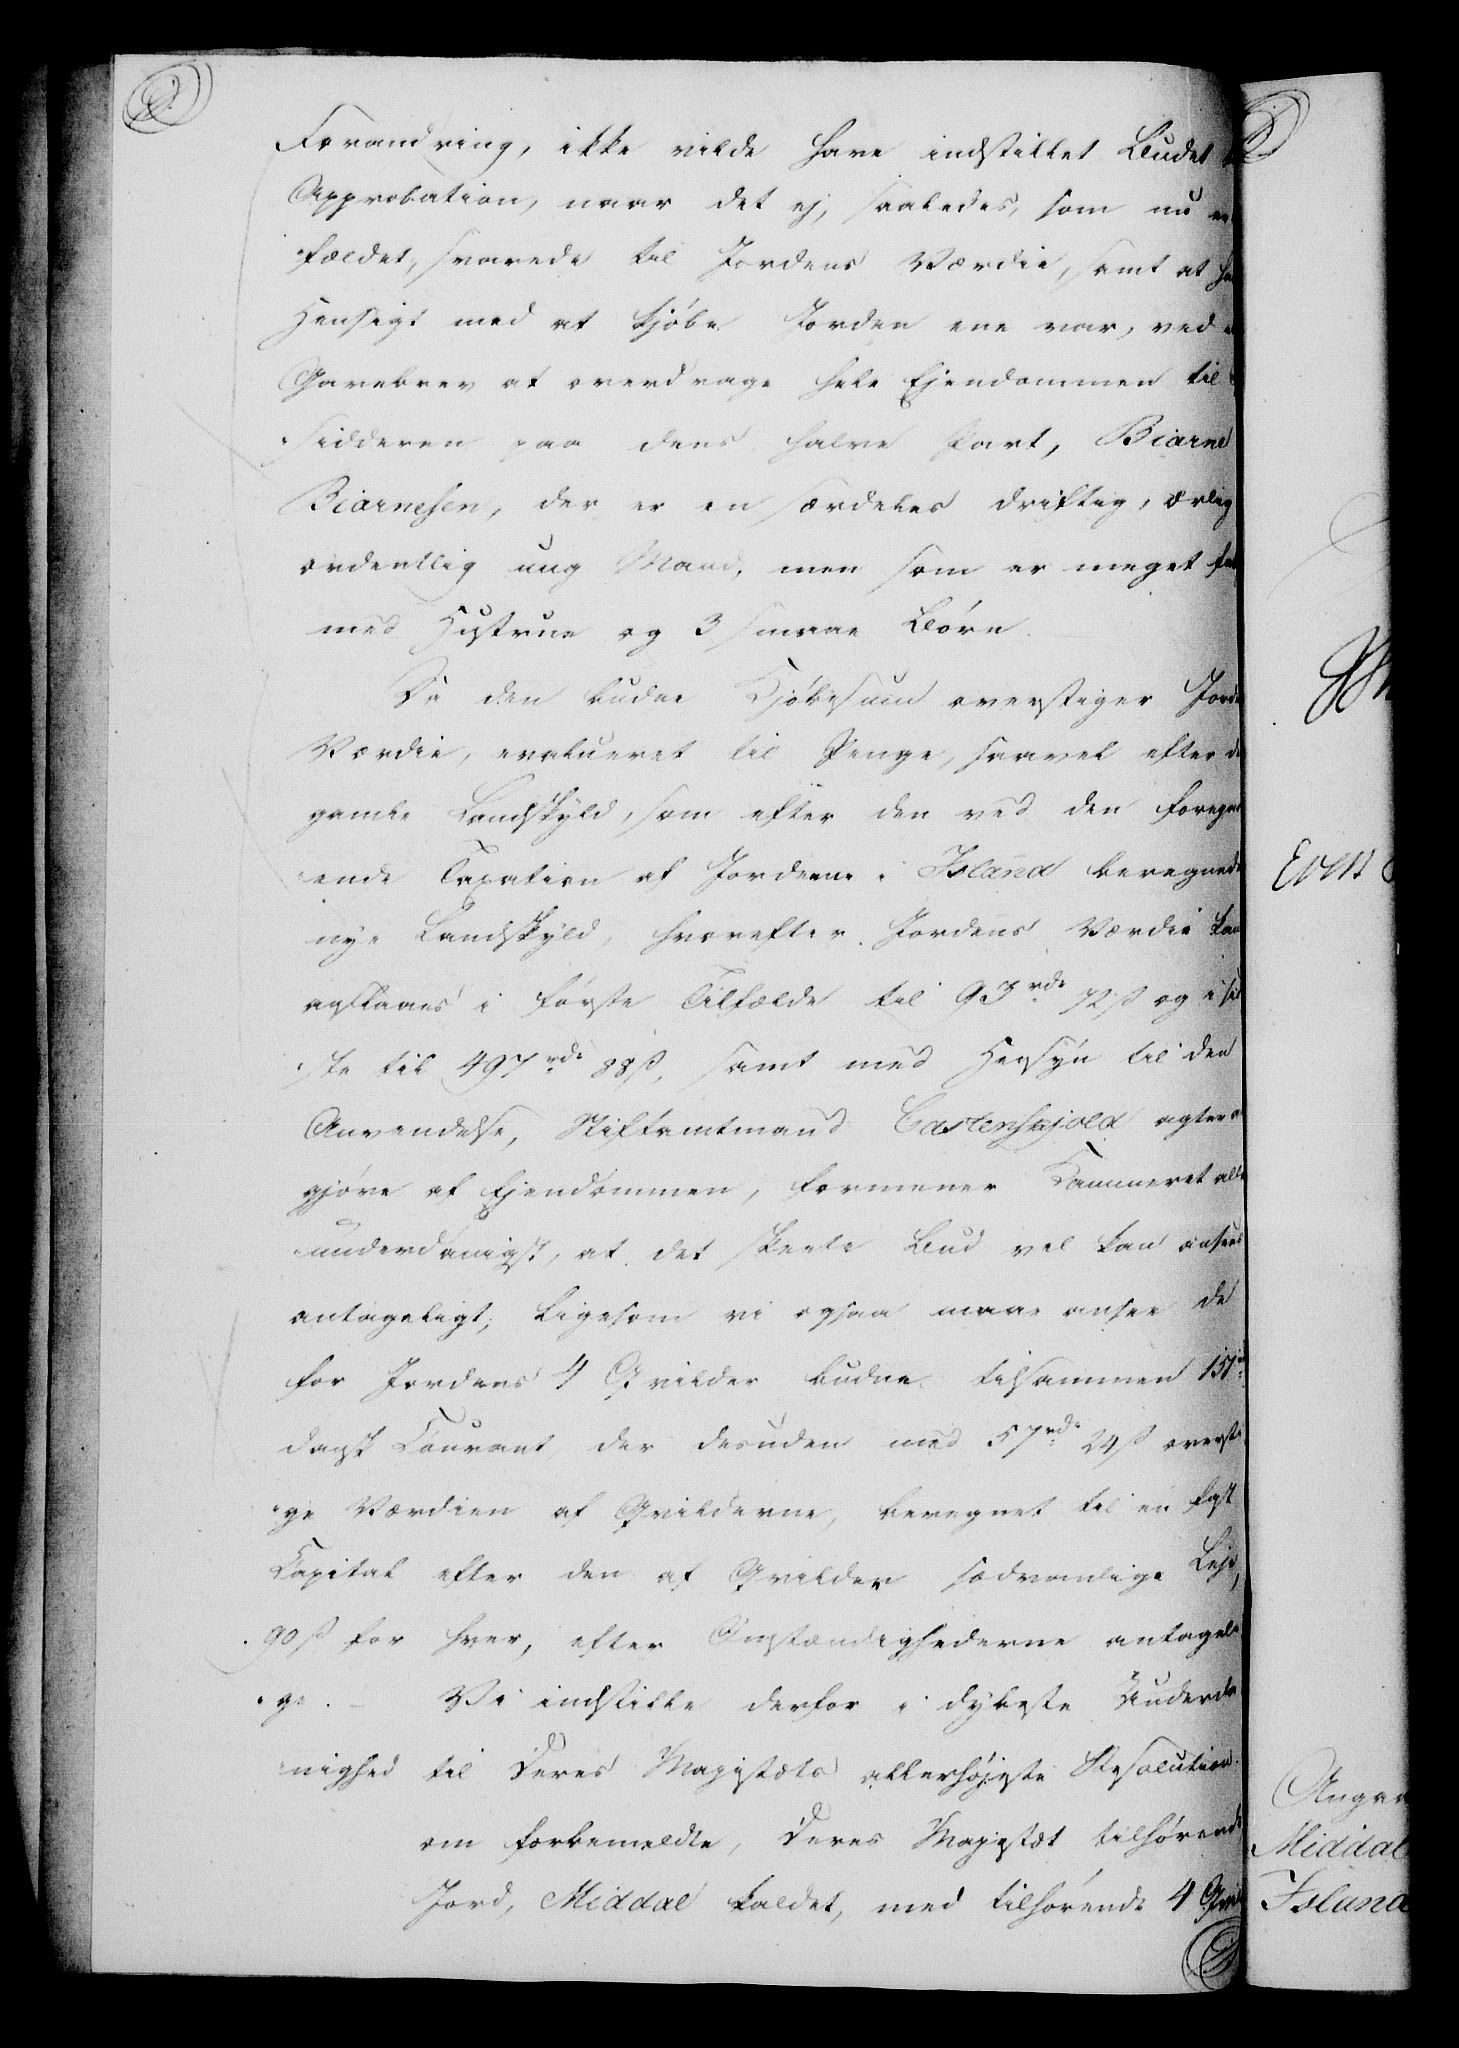 Forandring, ikke vilde have indstillet Budet
Approbation, naar det ej, saaledes, som nu er
fældet, svarede til Jordens Værdie, samt at
Hensigt med at kjöbe Jorden ene var, ved
Gavebrev at overdrage hele Ejendommen til
sidderen paa dens halve Part, Biarne
Biarnesen, der er en særdeles driftig, ærlig
ordentlig ung Mand, men som er meget
med Hustrue og 3 smaae Börn.
Da den budne Kjöbesum overstiger
Værdie, evalueret til Penge, saavel efter
gamle Landskyld, som efter den ved den
ende Taxation af Jorderne i Island beregnede
nye Landskyld, hvorefter Jordens Værdie kan
anslaaes i förste Tilfælde til 93 rdr 72 ß og i
ste til 497 rdr 88 ß, samt med Hensyn til den
Anvendelse, Stiftamtmand Castenskjold agter
gjöre af Ejendommen, formener Kammeret
underdanigst, at det skeete Bud vel kan ansees
antageligt; ligesom vi ogsaa maae ansee de
for Jordens 4 Qvilder budne tilsammen 151
dansk Courant, der desuden med 57 rdr 24 ß
ge Værdien af Qvilderne, beregnet til en fast
Capital efter den af Qvilder sædvanlige Leje,
90 ß for hver, efter Omstændighederne
ge. – Vi indstille derfor i dybeste
nighed til Deres Majestæts allerhöjeste Resolution
om forbemeldte, Deres Majestæt tilhörende
Jord, Middal kaldet, med tilhörende 4
Middal
Island